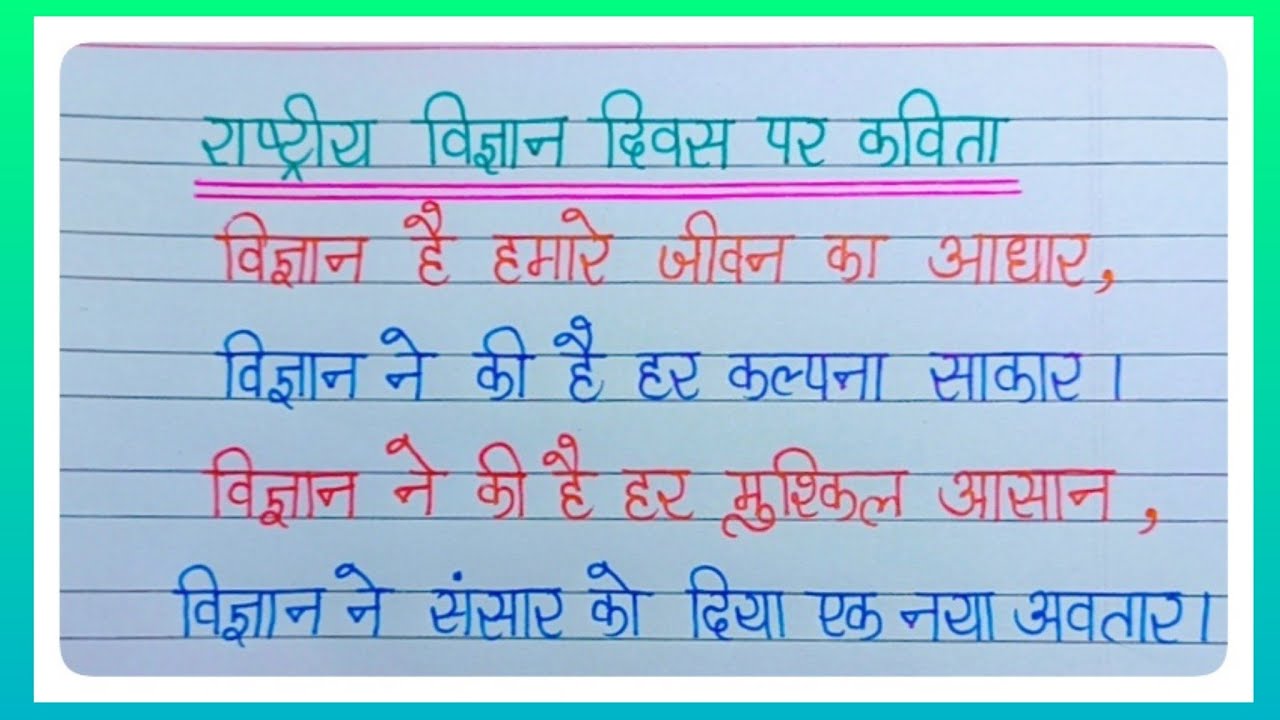 राष्ट्रीय विज्ञान दिवस पर कविता
विज्ञान है हमारे जीवन का आधार,
विज्ञान ने की है हर कल्पना साकार।
विज्ञान ने की है हर मुश्किल आसान,
विज्ञान ने संसार को दिया एक नया अवतार।